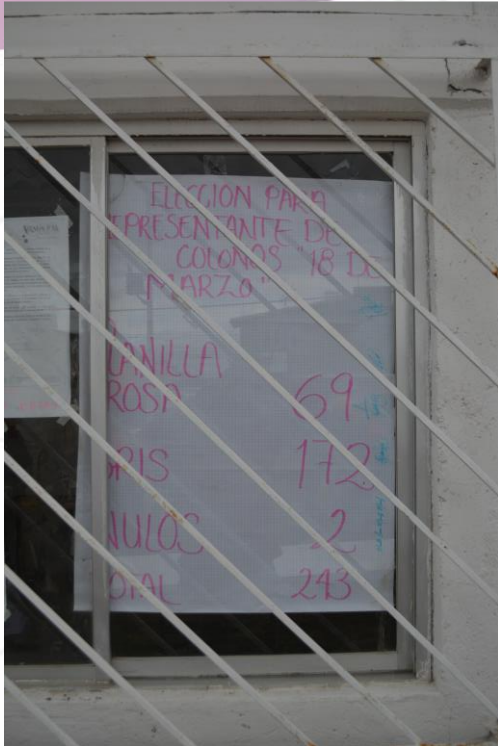 ELECCION PARA
EPRESENTANTE DE
COLONOS "18 DE
MARZO"
LANILLA
ROSA 69
GRIS 172
NULOS 2
OTAL 243